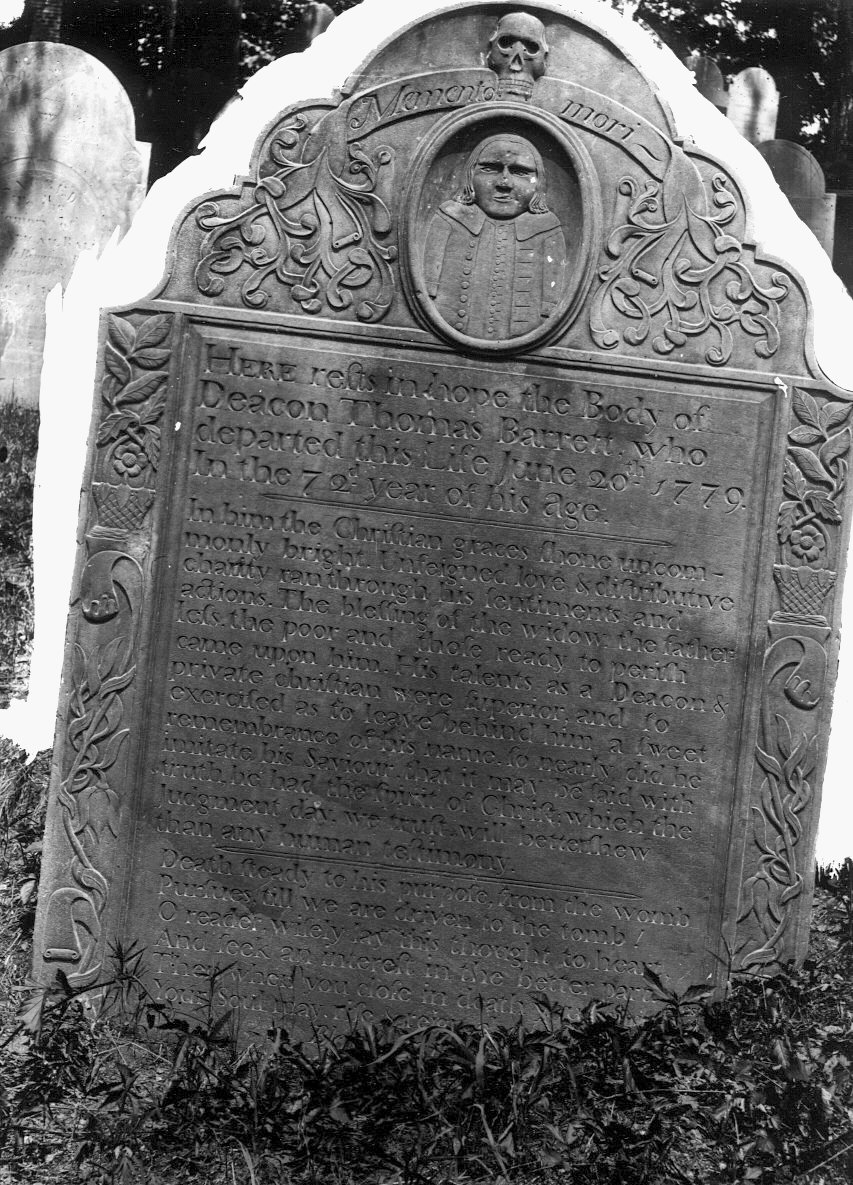 Memento mori
HERE reſts in hope the Body of
Deacon Thomas Barrett. who
departed this Life June 20th 1779.
In the 72d year of his age.
In him the Chriſtian graces ſhone uncom-
monly bright. Unfeigned love & diſtributive
charity ran through his ſentiments and
actions. The bleſſing of the widow, the father
leſs, the poor and thoſe ready to periſh
came upon him. His talents as a Deacon &
private chriſtian were ſuperior, and ſo
exerciſed as to leave behind him a ſweet
remembrance of his name. ſo nearly did he
imitate his Saviour, that it may be ſaid with
truth, he had the ſpirit of Chriſt; which the
Judgment day, we truſt, will better ſhew
than any human teſtimony.
Death ſteady to his purpoſe, from the womb
Purſues, till we are driven to the tomb /
O reader wiſely lay this thought to heart
And ſeek an intereſt in the better part
Then when you cloſe in death
your Soul may